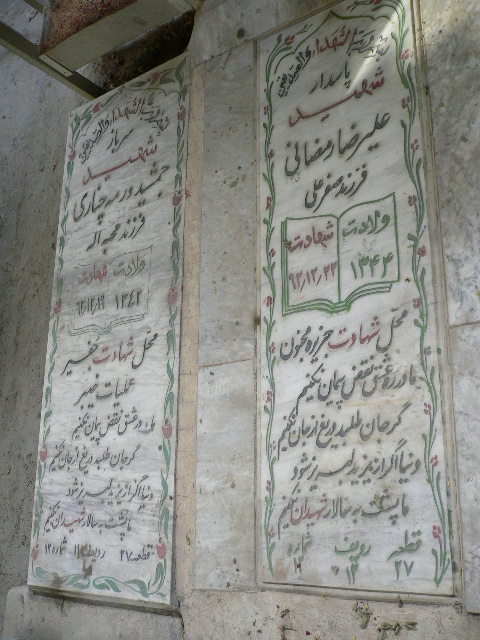 الشهداء والصدیقین
پاسدار
شهید
علیرضا رمضانی
فرزند صفر علی
ولادت
۱۳۴۴
شهادت
۶۲/۱۲/۲۲
محل شهادت جزیره مجنون
ما در ره عشق نقض پیمان نکنیم
گر جان طلبد دریغ از جان نکنیم
دنیا اگر از یزید لبریز شود
ما پشت به سالار شهیدان نکنیم
قطعه ردیف شماره
۲۷ ۱۲
الشهداء والصدیقین
سرباز
شهید
جمشید ورمه چناری
فرزند محبه اله
ولادت
۱۳۴۲
شهادت
محل شهادت حفیر
عملیات خیبر
ما در عشق نقض پیمان نکنیم
گر جان طلبد دریغ از جان نکنیم
دنیا اگر از یزید لبریز شود
ما پشت به سالار شهیدان نکنیم
قطعه ۲۷ ردیف شماره